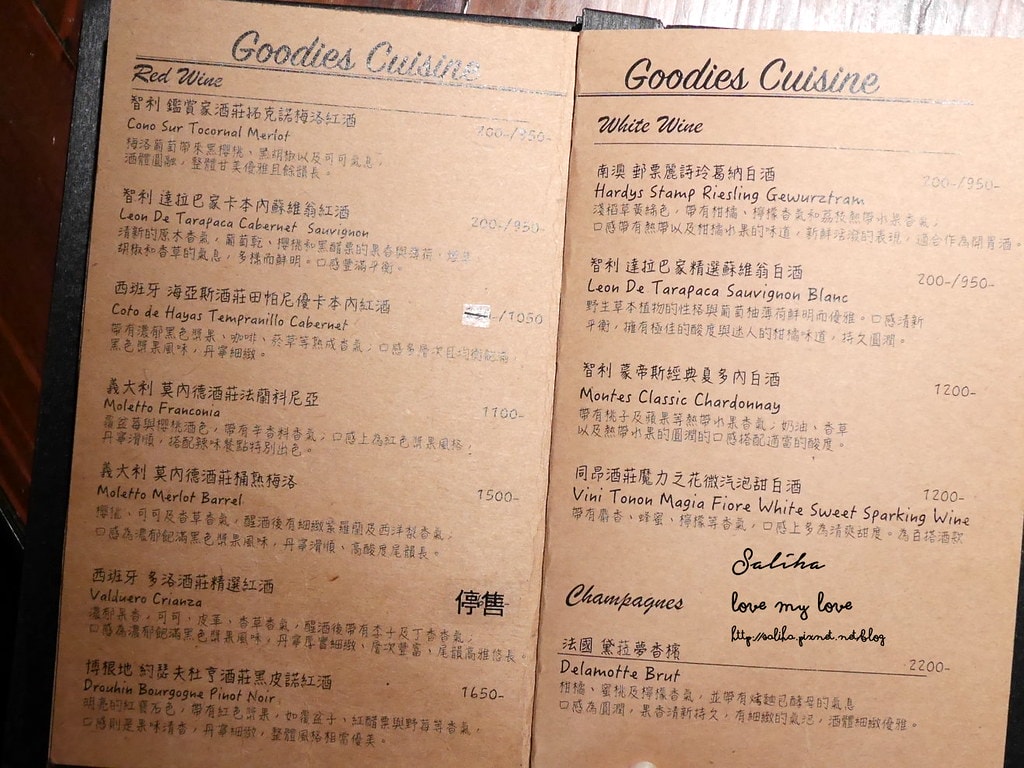 Goodies Cuisine
Red Wine
智利 鑑賞家酒莊拓克諾梅洛紅酒
Cono Sur Tocornal Merlot
200-/950-
梅洛葡萄帶來黑櫻桃、黑胡椒以及可可氣息，
酒體圓融，整體甘美優雅且餘韻長。
智利 達拉巴家卡本內蘇維翁紅酒
Leon De Tarapaca Cabernet Sauvignon
200-/950-
清新的原木香氣，葡萄乾、櫻桃和黑醋栗的果香與薄荷，
胡椒和香草的氣息，多樣而鮮明。口感豐滿平衡。
西班牙 海亞斯酒莊田帕尼優卡本內紅酒
Coto de Hayas Tempranillo Cabernet
/1050
帶有濃郁黑色漿果、咖啡、菸草等熟成香氣；口感多層次且均衡飽滿
黑色漿果風味，丹寧細緻。
義大利 莫內德酒莊法蘭科尼亞
Moletto Franconia
1100-
覆盆莓與櫻桃酒色，帶有辛香料香氣；口感上為紅色漿果風格，
丹寧滑順，搭配辣味餐點特別出色。
義大利 莫內德酒莊桶熟梅洛
Moletto Merlot Barrel
1500-
櫻桃、可可及香草香氣，醒酒後有細緻紫羅蘭及西洋梨香氣；
口感為濃郁飽滿黑色漿果風味，丹寧滑順、高酸度尾韻長。
西班牙 多洛酒莊精選紅酒
Valduero Crianza
停售
濃郁果香，可可，皮革、香草香氣，醒酒後帶有李子及丁香香氣；
口感為濃郁飽滿黑色漿果風味，丹寧厚實細緻、層次豐富、尾韻高雅悠長。
博根地 約瑟夫杜亨酒莊黑皮諾紅酒
Drouhin Bourgogne Pinot Noir
1650-
明亮的紅寶石色，帶有紅色漿果，如覆盆子、紅醋栗與野莓等香氣，
口感則是果味清香，丹寧細緻，整體風格相當優美。
Goodies Cuisine
White Wine
南澳 郵票麗詩玲葛納白酒
Hardys Stamp Riesling Gewurztram
200-/950-
淺稻草黃綠色，帶有柑橘、檸檬香氣和荔枝熱帶水果香氣，
口感帶有熱帶以及柑橘水果的味道，新鮮活潑的表現，適合作為開胃酒。
智利 達拉巴家精選蘇維翁白酒
Leon De Tarapaca Sauvignon Blanc
200-/950-
野生草本植物的性格與葡萄柚薄荷鮮明而優雅。口感清新
平衡，擁有極佳的酸度與迷人的柑橘味道，持久圓潤。
智利 蒙帝斯經典夏多內白酒
Montes Classic Chardonnay
1200-
帶有桃子及蘋果等熱帶水果香氣；奶油、香草
以及熱帶水果的圓潤的口感搭配適當的酸度。
同昂酒莊魔力之花微汽泡甜白酒
Vini Tonon Magia Fiore White Sweet Sparking Wine
1200-
帶有麝香、蜂蜜、檸檬等香氣，口感上多為清爽甜度。為百搭酒款
Saliha
love my love
http://saliha.pixnet.net/blog
Champagnes
法國 黛菈夢香檳
Delamotte Brut
2200-
柑橘、蜜桃及檸檬香氣，並帶有
口感為圓潤，果香清新持久，有細緻的氣泡，酒體細緻優雅。